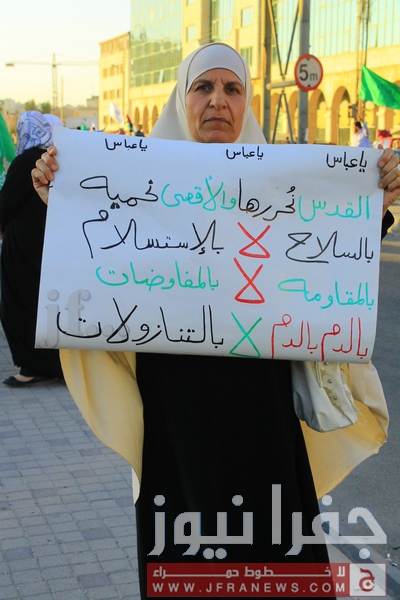 5m
ياعباس ياعباس ياعباس
القدس نُحررها والأقصى نحميه
بالسلاح لا بالإستسلام
بالمقاومه لا بالمفاوضات
بالدم بالدم لا بالتنازولات
jfra
جفرا نيوز
لا خطوط حمراء
WWW.JFRANEWS.COM